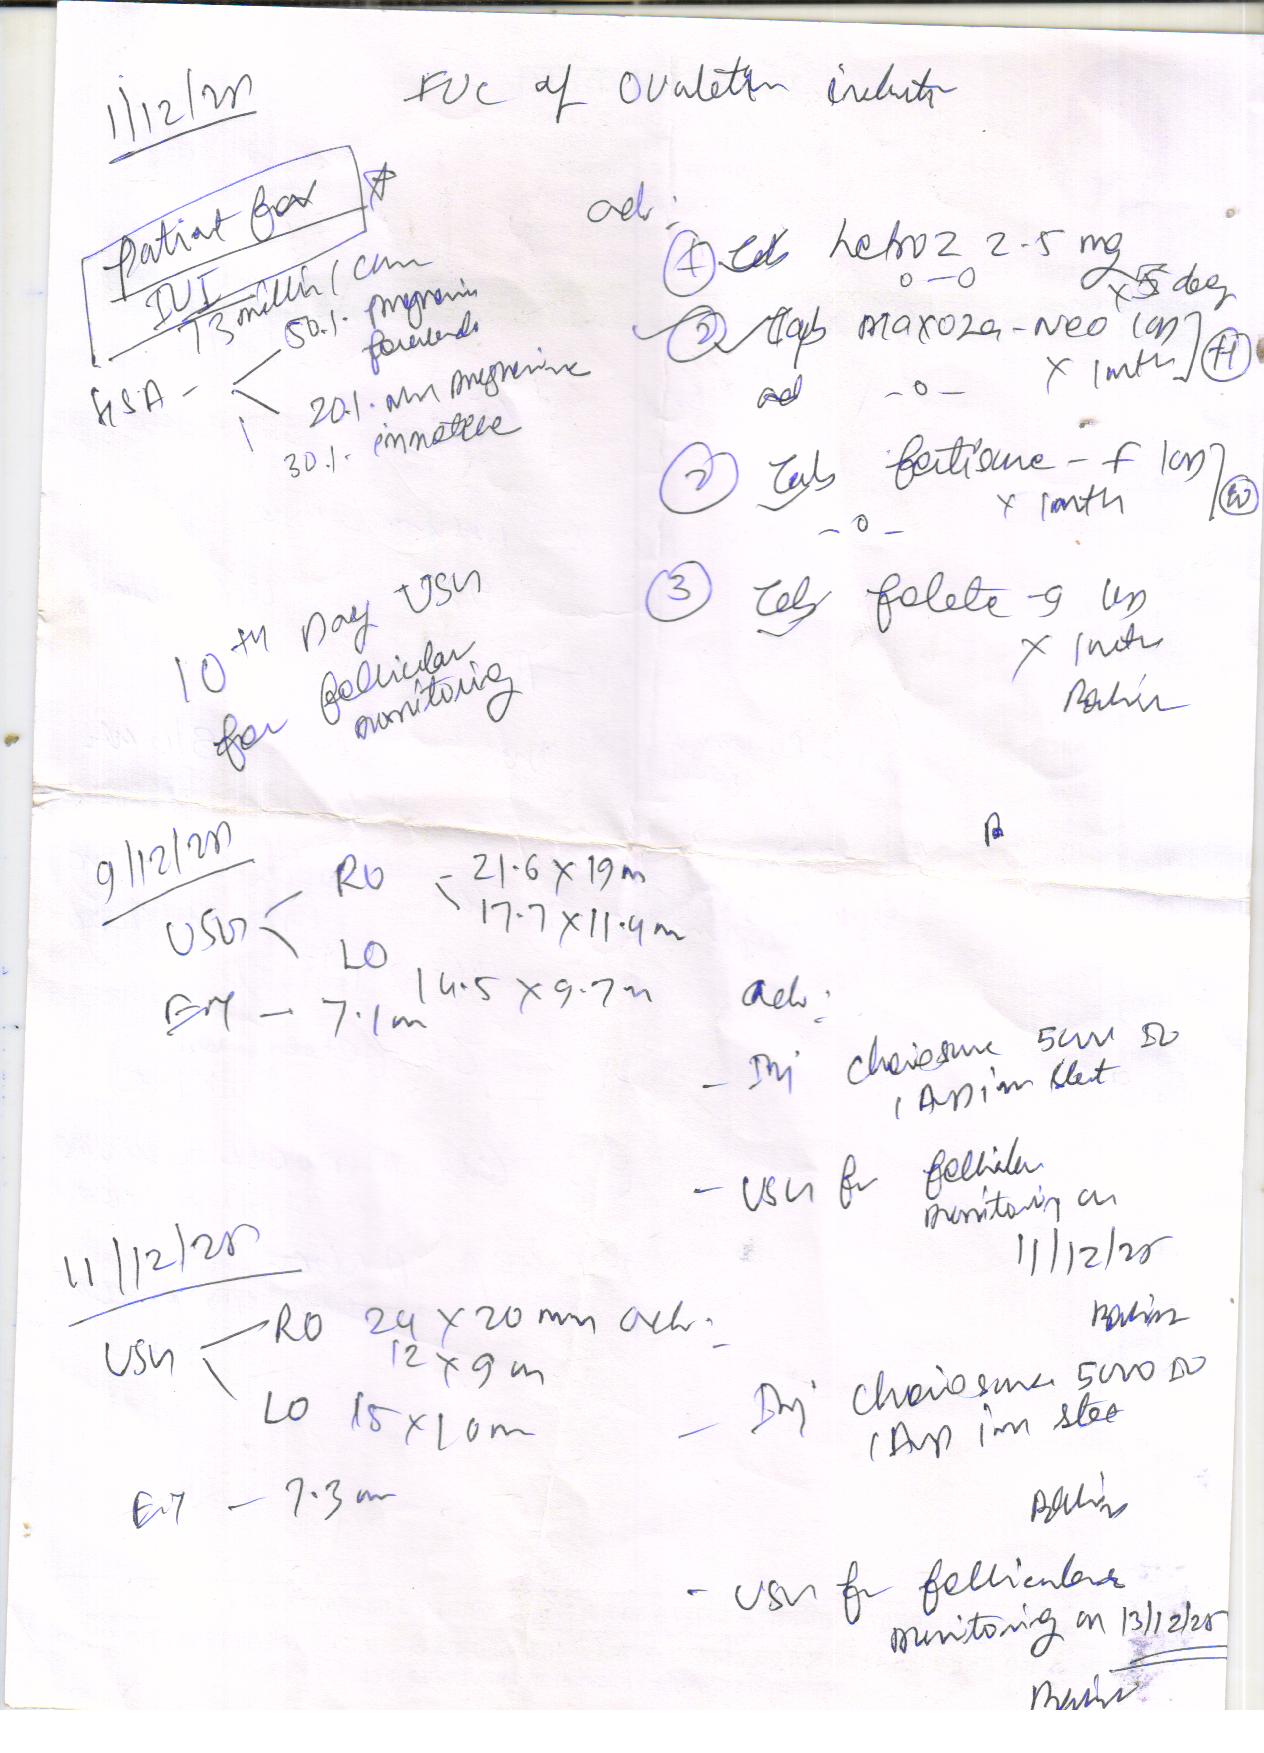 1/12/25
FUC of ovulation induction
Patient for
IUI
73 million / cumm
HSA - 50% progressive
forwards
20% non progressive
30% immotile
adv:
① Tab Letroz 2.5 mg
0-0 x 5 days
② Tab Maxoza-Neo 1 OD
x 1 month
-0-
② Tab fertisure-f 1 OD
x 1 month
-0-
③ Tab folate-9
x 1 month
10th Day USG
for follicular
monitoring
9/12/25
USG RO - 21.6 x 19 m
17.7 x 11.4 m
LO
14.5 x 9.7 m
ET - 7.1 m
adv:
- Inj choriosure 5000 IU
1 Amp im stat
- USG for follicular
monitoring on
11/12/25
11/12/25
USG RO 24 x 20 mm
12 x 9 m
LO 15 x 10 m
ET - 7.3 m
adv:
- Inj choriosure 5000 IU
1 Amp im stat
- USG for follicular
monitoring on 13/12/25